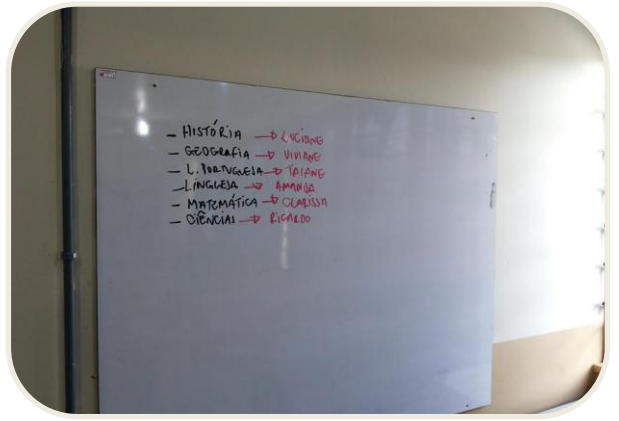 – HISTÓRIA → LUCIANE
– GEOGRAFIA → VIVIANE
– L. PORTUGUESA → TAIANE
– L. INGLESA → AMANDA
– MATEMÁTICA → CLARISSA
– CIÊNCIAS → RICARDO